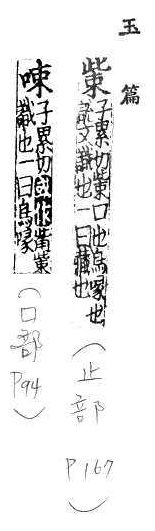 玉篇
㭰 子累切㭰口也鳥喙也
說文識也一曰藏也
（止部 P167）
子累切或作觜㭰
識也一曰鳥喙
（口部 P94）